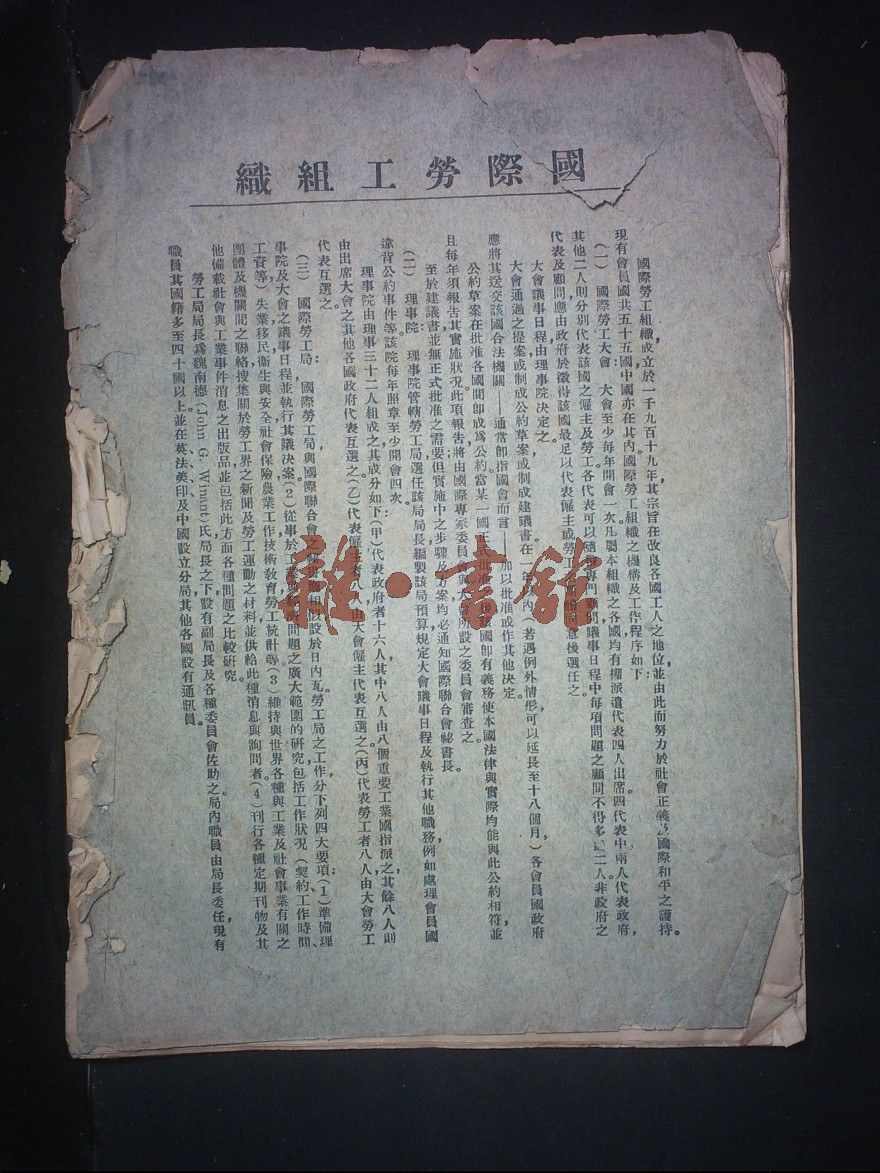 國際勞工組織
國際勞工組織成立於一千九百十九年，其宗旨在改良各國工人之地位，並由此而努力於社會正義及國際和平之護持。
現有會員國共五十五國中國亦在其內。國際勞工組織之機構及工作程序如下：
（一） 國際勞工大會： 大會至少每年開會一次。凡屬本組織之各國均有權派遣代表四人出席，四代表中兩人代表政府，
其他二人則分別代表該國之僱主及勞工。各代表可以隨帶專門顧問，議事日程中每項問題之顧問不得多過二人。非政府之
代表及顧問應由政府於徵得該國最足以代表僱主或勞工 後選任之。
大會議事日程由理事院決定之。
大會通過之提案或制成公約草案或制成建議書。在一年內（若遇例外情形可以延長至十八個月）各會員國政府
應將其送交該國合法機關——通常即指國會而言——加以批准或作其他決定。
公約草案在批准各國間即成為公約。當某一國正式批准 該國即有義務使本國法律與實際均能與此公約相符，並
且每年須報告其實施狀況。此項報告將由國際專家委員會與大會所設之委員會審查之。
至於建議書並無正式批准之需要，但實施中之步驟及方案均必通知國際聯合會祕書長。
（二） 理事院： 理事院管轄勞工局，選任該局局長，編製該局預算，規定大會議事日程及執行其他職務，例如處理會員國
違背公約事件等。該院每年照章至少開會四次。
理事院由理事三十二人組成之，其成分如下：（甲）代表政府者十六人，其中八人由八個重要工業國指派之，其餘八人則
由出席大會之其他各國政府代表互選之；（乙）代表僱主者八人，由大會僱主代表互選之；（丙）代表勞工者八人，由大會勞工
代表互選之。
（三） 國際勞工局： 國際勞工局與國際聯合會之 相似，設於日內瓦。勞工局之工作分下列四大要項：（1）準備理
事院及大會之議事日程並執行其議決案；（2）從事於工業與經濟問題之廣大範圍的研究，包括工作狀況（契約、工作時間、
工資等）失業、移民、衛生與安全、社會保險、農業工作、技術教育、勞工統計等；（3）維持與世界各種與工業及社會事業有關之
團體及機關間之聯絡，搜集關於勞工界之新聞及勞工運動之材料，並供給此種消息與詢問者；（4）刊行各種定期刊物及其
他備載社會與工業事件消息之出版品，並包括此方面各種問題之比較研究。
勞工局局長為魏南德（John G. Winant）氏，局長之下設有副局長及各種委員會佐助之。局內職員由局長委任，現有
職員其國籍多至四十國以上，並在英、法、美、印及中國設立分局，其他各國設有通訊員。
雜·書館